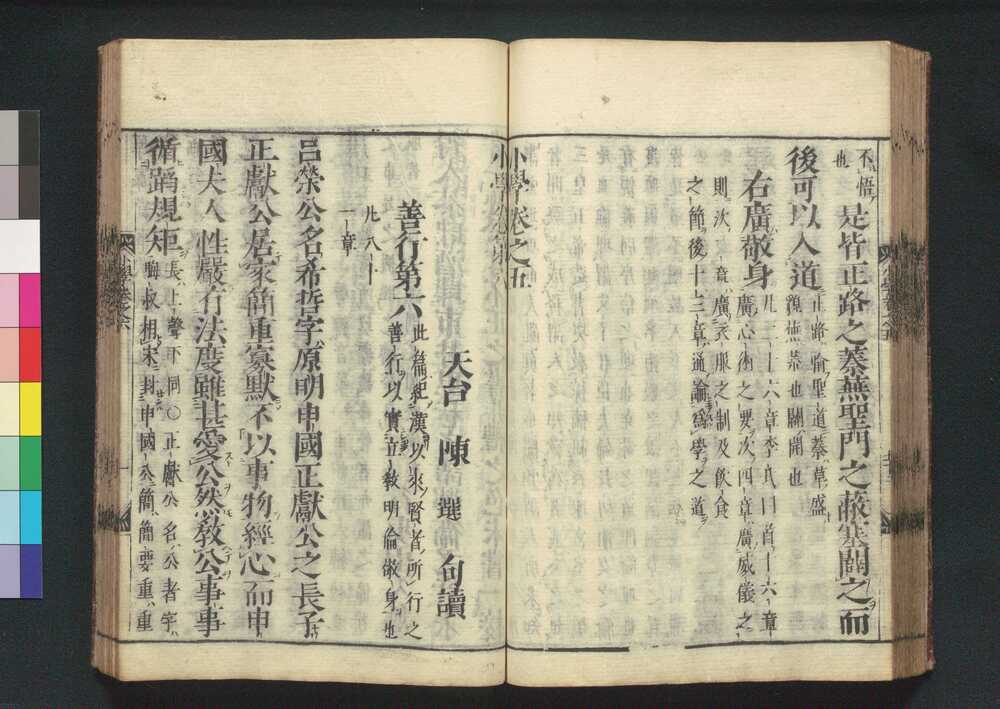 不悟
也
是皆正路之蓁蕪聖門之蔽塞闢之而
後可以入道
正路喩聖道蓁草盛
貌蕪荒也闢開也
右廣敬身
凡三十六章李氏曰首十六章
廣心術之要次四章廣威儀之
則次二章廣衣服之制及飮食
之節後十三章通論爲學之道
小學卷之五
小學卷之六
天台 陳選 句讀
善行第六
此篇紀漢以來賢者所行之
善行以實立敎明倫敬身也
凡八十
一章
呂榮公名希哲字原明申國正獻公之長子
正獻公居家簡重寡默不以事物經心而申
國夫人性嚴有法度雖甚愛公然敎公事事
循蹈規矩
長上聲下同○正獻公名公著字
晦叔相宋封申國公簡簡要重重